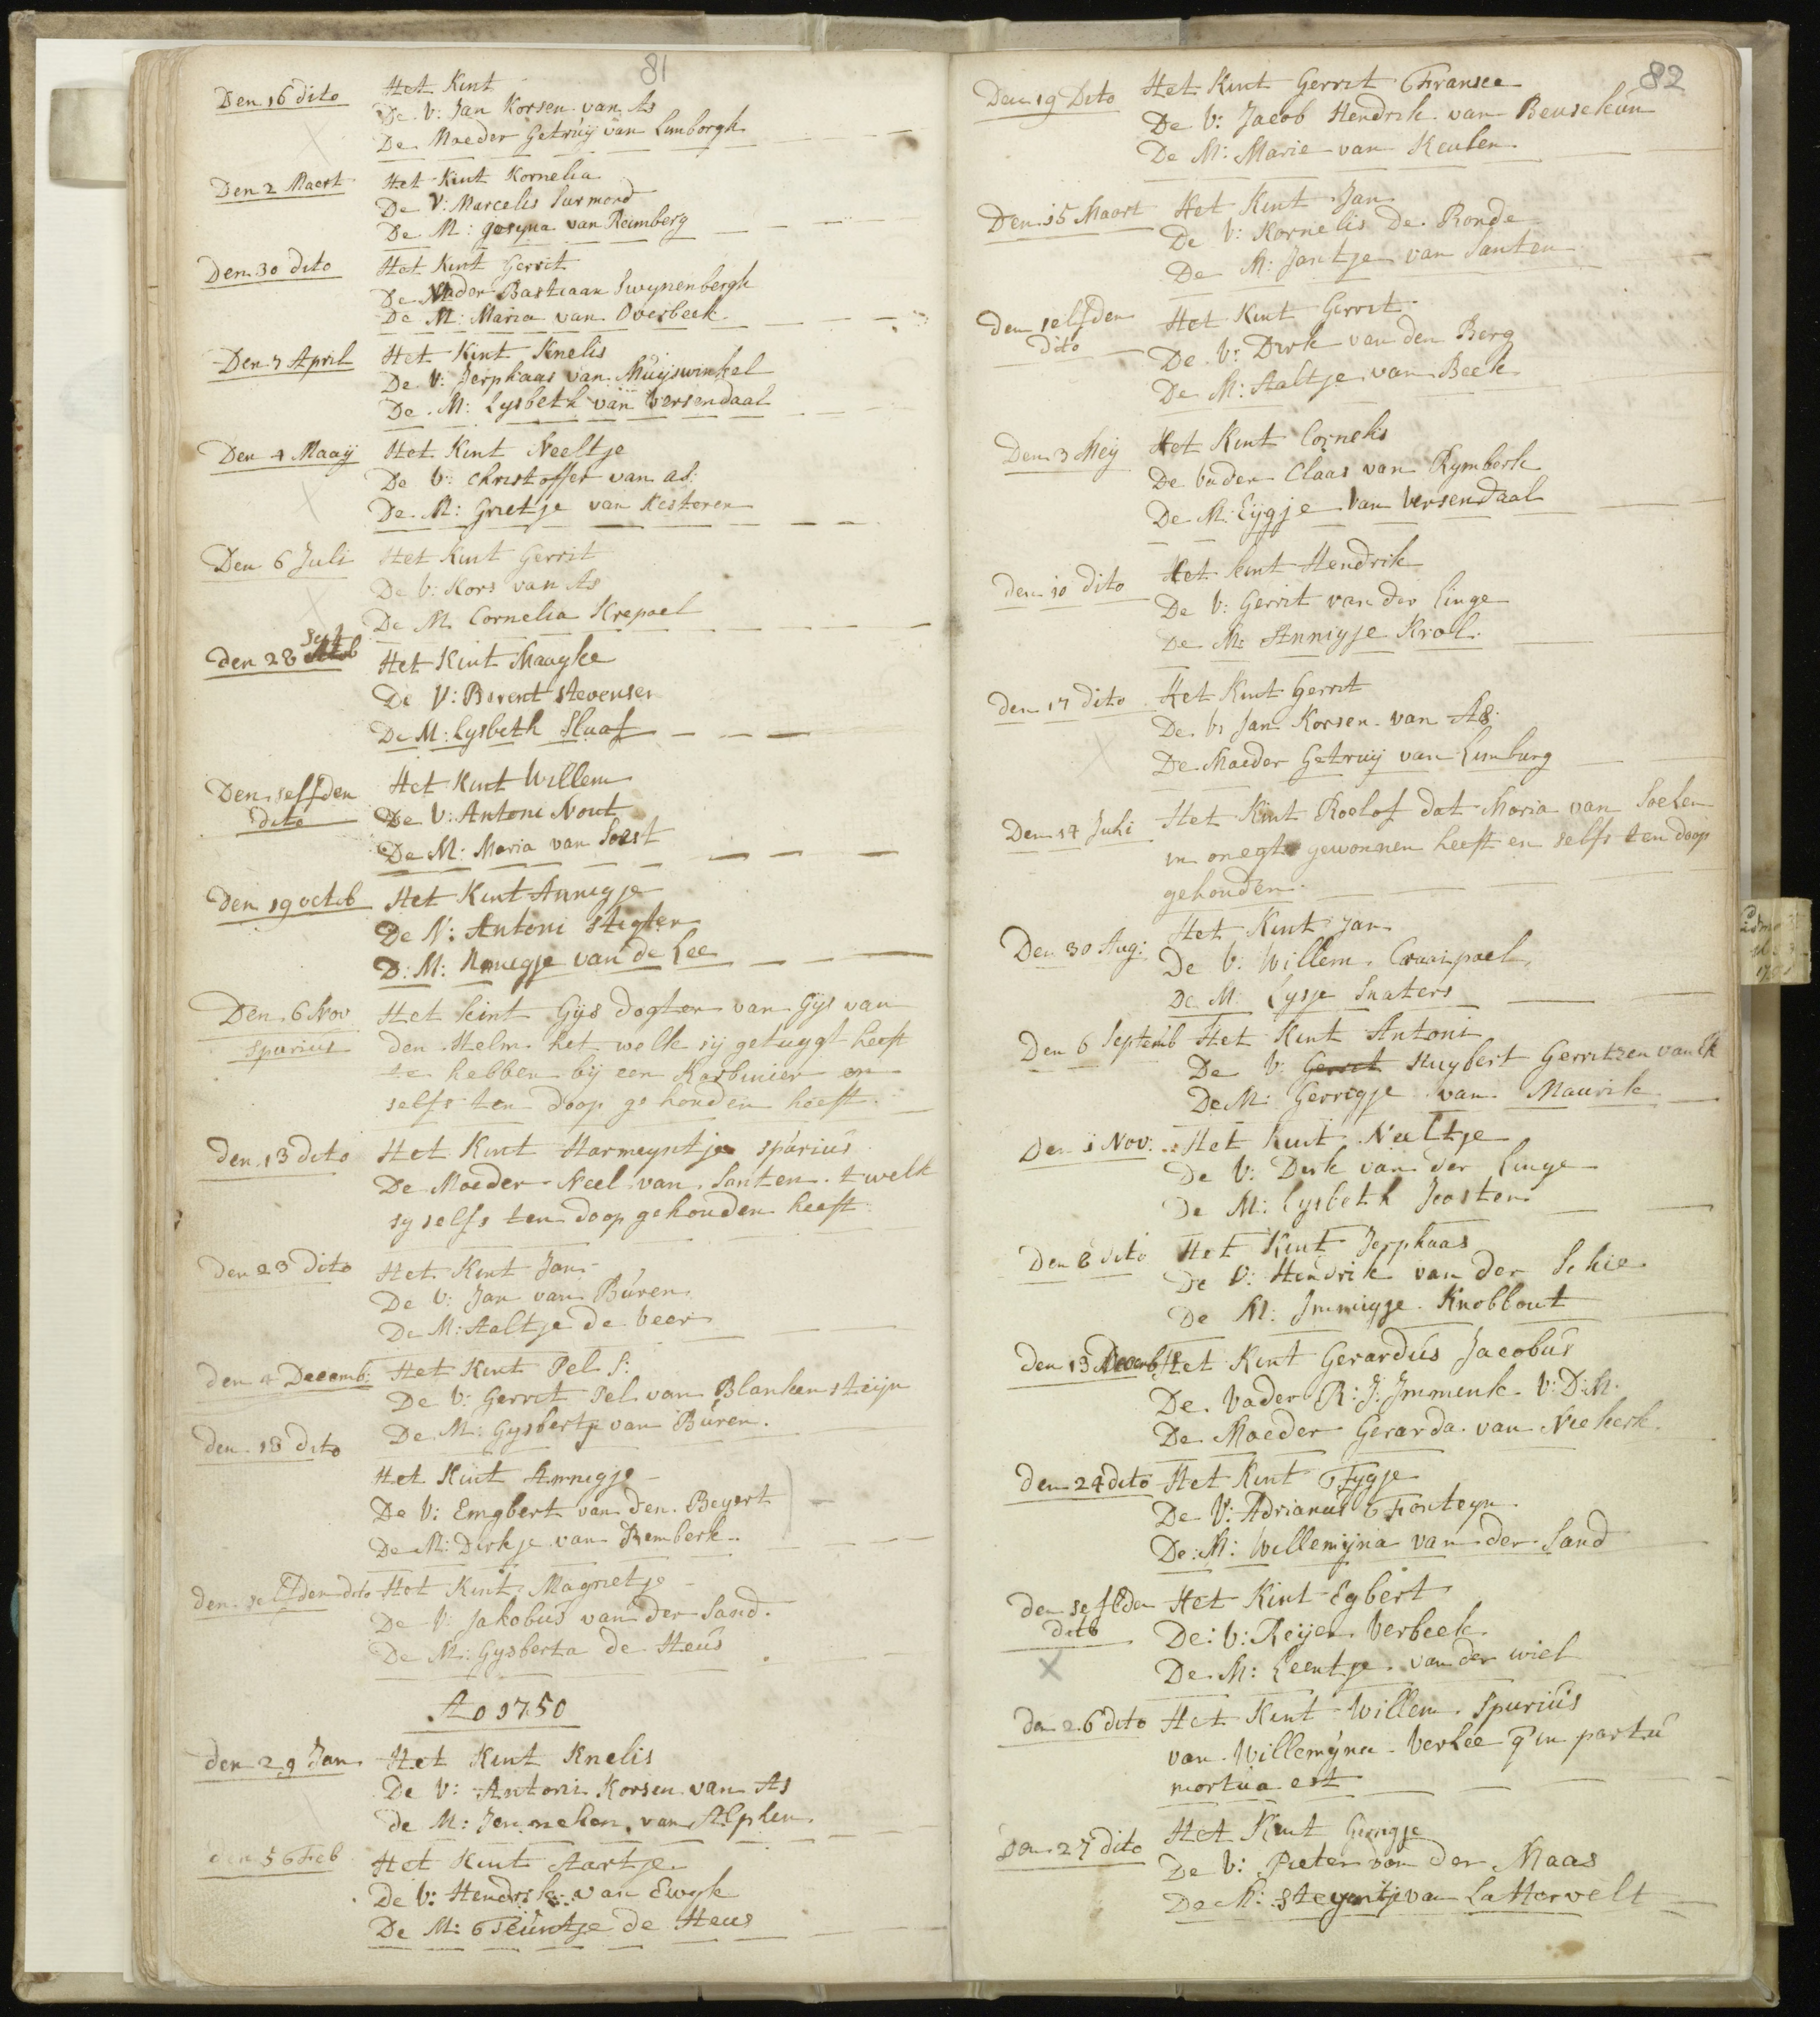 81
Den 16 dito Het Kint
De V: Jan Korsen van As
De Moeder Getruij van Limborgh
Den 2 Maert Het Kint Kornelia
De V: Marcelis Surmond
De M: Gosyna van Reimberg
Den 30 dito Het Kint Gerrit
De Vader Bastiaan Swynenbergh
De M: Maria van Overbeek
Den 7 April Het Kint Knelis
De V: Jerphaas van Muijswinkel
De M: Lysbeth van Versendaal
Den 4 Maaij Het Kint Neeltje
De V: Christoffer van as:
De M: Grietje van Kesteren
Den 6 Juli Het Kint Gerrit
De V: Kors van As
De M. Cornelia Krepoel
Den 28 Sept Het Kint Maagke
De V: Berent Stevenser
De M: Lysbeth Slaaf
Den selfden Het Kint Willem
dito De V: Antoni Nout
De M: Maria van Soest
Den 19 octob Het Kint Annigje
De V: Antoni Stigter
D: M: Annigje van de Lee
Den 6 Nov Het kint Gijs dogter van Gijs van
spurius den Helm het welk sij getuygt heeft
te hebben bij een Karbinier en
selfs ten doop gehouden heeft.
Den 13 dito Het Kint Harmeyntje spurius
De Moeder Neel van Santen. t welk
sy selfs ten doop gehouden heeft
Den 23 dito Het Kint Jan
De V: Jan van Buren
De M: Aaltje de Veer
Den 4 Decemb: Het Kint Pel S:
De V: Gerrit Pel van Blankensteijn
De M: Gysbertje van Buren.
Den 18 dito
Het Kint Annigje
De V: Engbert van den Beyert
De M: Dirkje van Remberk
Den selfden dito Het Kint Magrietje
De V: Jakobus van der Sand.
De M: Gysberta de Heus
Ao 1750
den 29 Jan Het Kint Knelis
De V: Antoni Korsen van As
de M: Jenneken van Alphen
den 5 Feb Het Kint Aartje
De V: Hendrik van Ewyk
De M: Teuntje de Heus
82
Den 19 Dito Het Kint Gerrit Fransee
De V: Jacob Hendrik van Beusekum
De M: Marie van Keulen
Den 15 Maart Het Kint Jan
De V: Kornelis De Ronde
De M: Jantje van Santen
Den selfden Het Kint Gerrit
dito De V: Dirk van den Berg
De M: Aaltje van Beek
Den 3 Meij Het Kint Cornelis
De Vader Claas van Rymberk
De M: Eijgje van Versendaal
den 10 dito Het kint Hendrik
De V: Gerrit van der Linge
De M: Annigje Krol.
den 17 dito Het Kint Gerrit
De V: Jan Korsen van As.
De Moeder Getruij van Limburg
Den 14 Juli Het Kint Roelof dat Maria van Soelen
in onegt gewonnen heeft en selfs ten doop
gehouden.
Den 30 Aug: Het Kint Jan
De V: Willem Craaipoel
De M: Lysje Snaters
Den 6 Septemb Het Kint Antoni
De V: Gerrit Huybert Gerritzen van Ek
De M: Gerrigje van Maurik
Den 1 Nov: Het kint Neeltje
De V: Dirk van der Linge
De M: Lysbeth Joosten
Den 8 dito Het Kint Jerphaas
De V: Hendrik van der Schie
De M: Immigje Knobbout
Den 13 Decemb Het Kint Gerardus Jacobus
De Vader R: J: Immink V: D: M.
De Moeder Gerarda van Niekerk
den 24 dito Het Kint Fygje
De V: Adrianus Fonteyn
De: M: Willemijna van der Sand
den selfden Het Kint Egbert
dito De: V: Reijer Verbeek
De M: Leentje van der wiel
den 26 dito Het Kint Willem spurius
van Willemijna Verlee q in partu
mortua est
den 27 dito Het Kint Gerrigje
De V: Pieter van der Maas
De M: Steyntje van Lattervelt